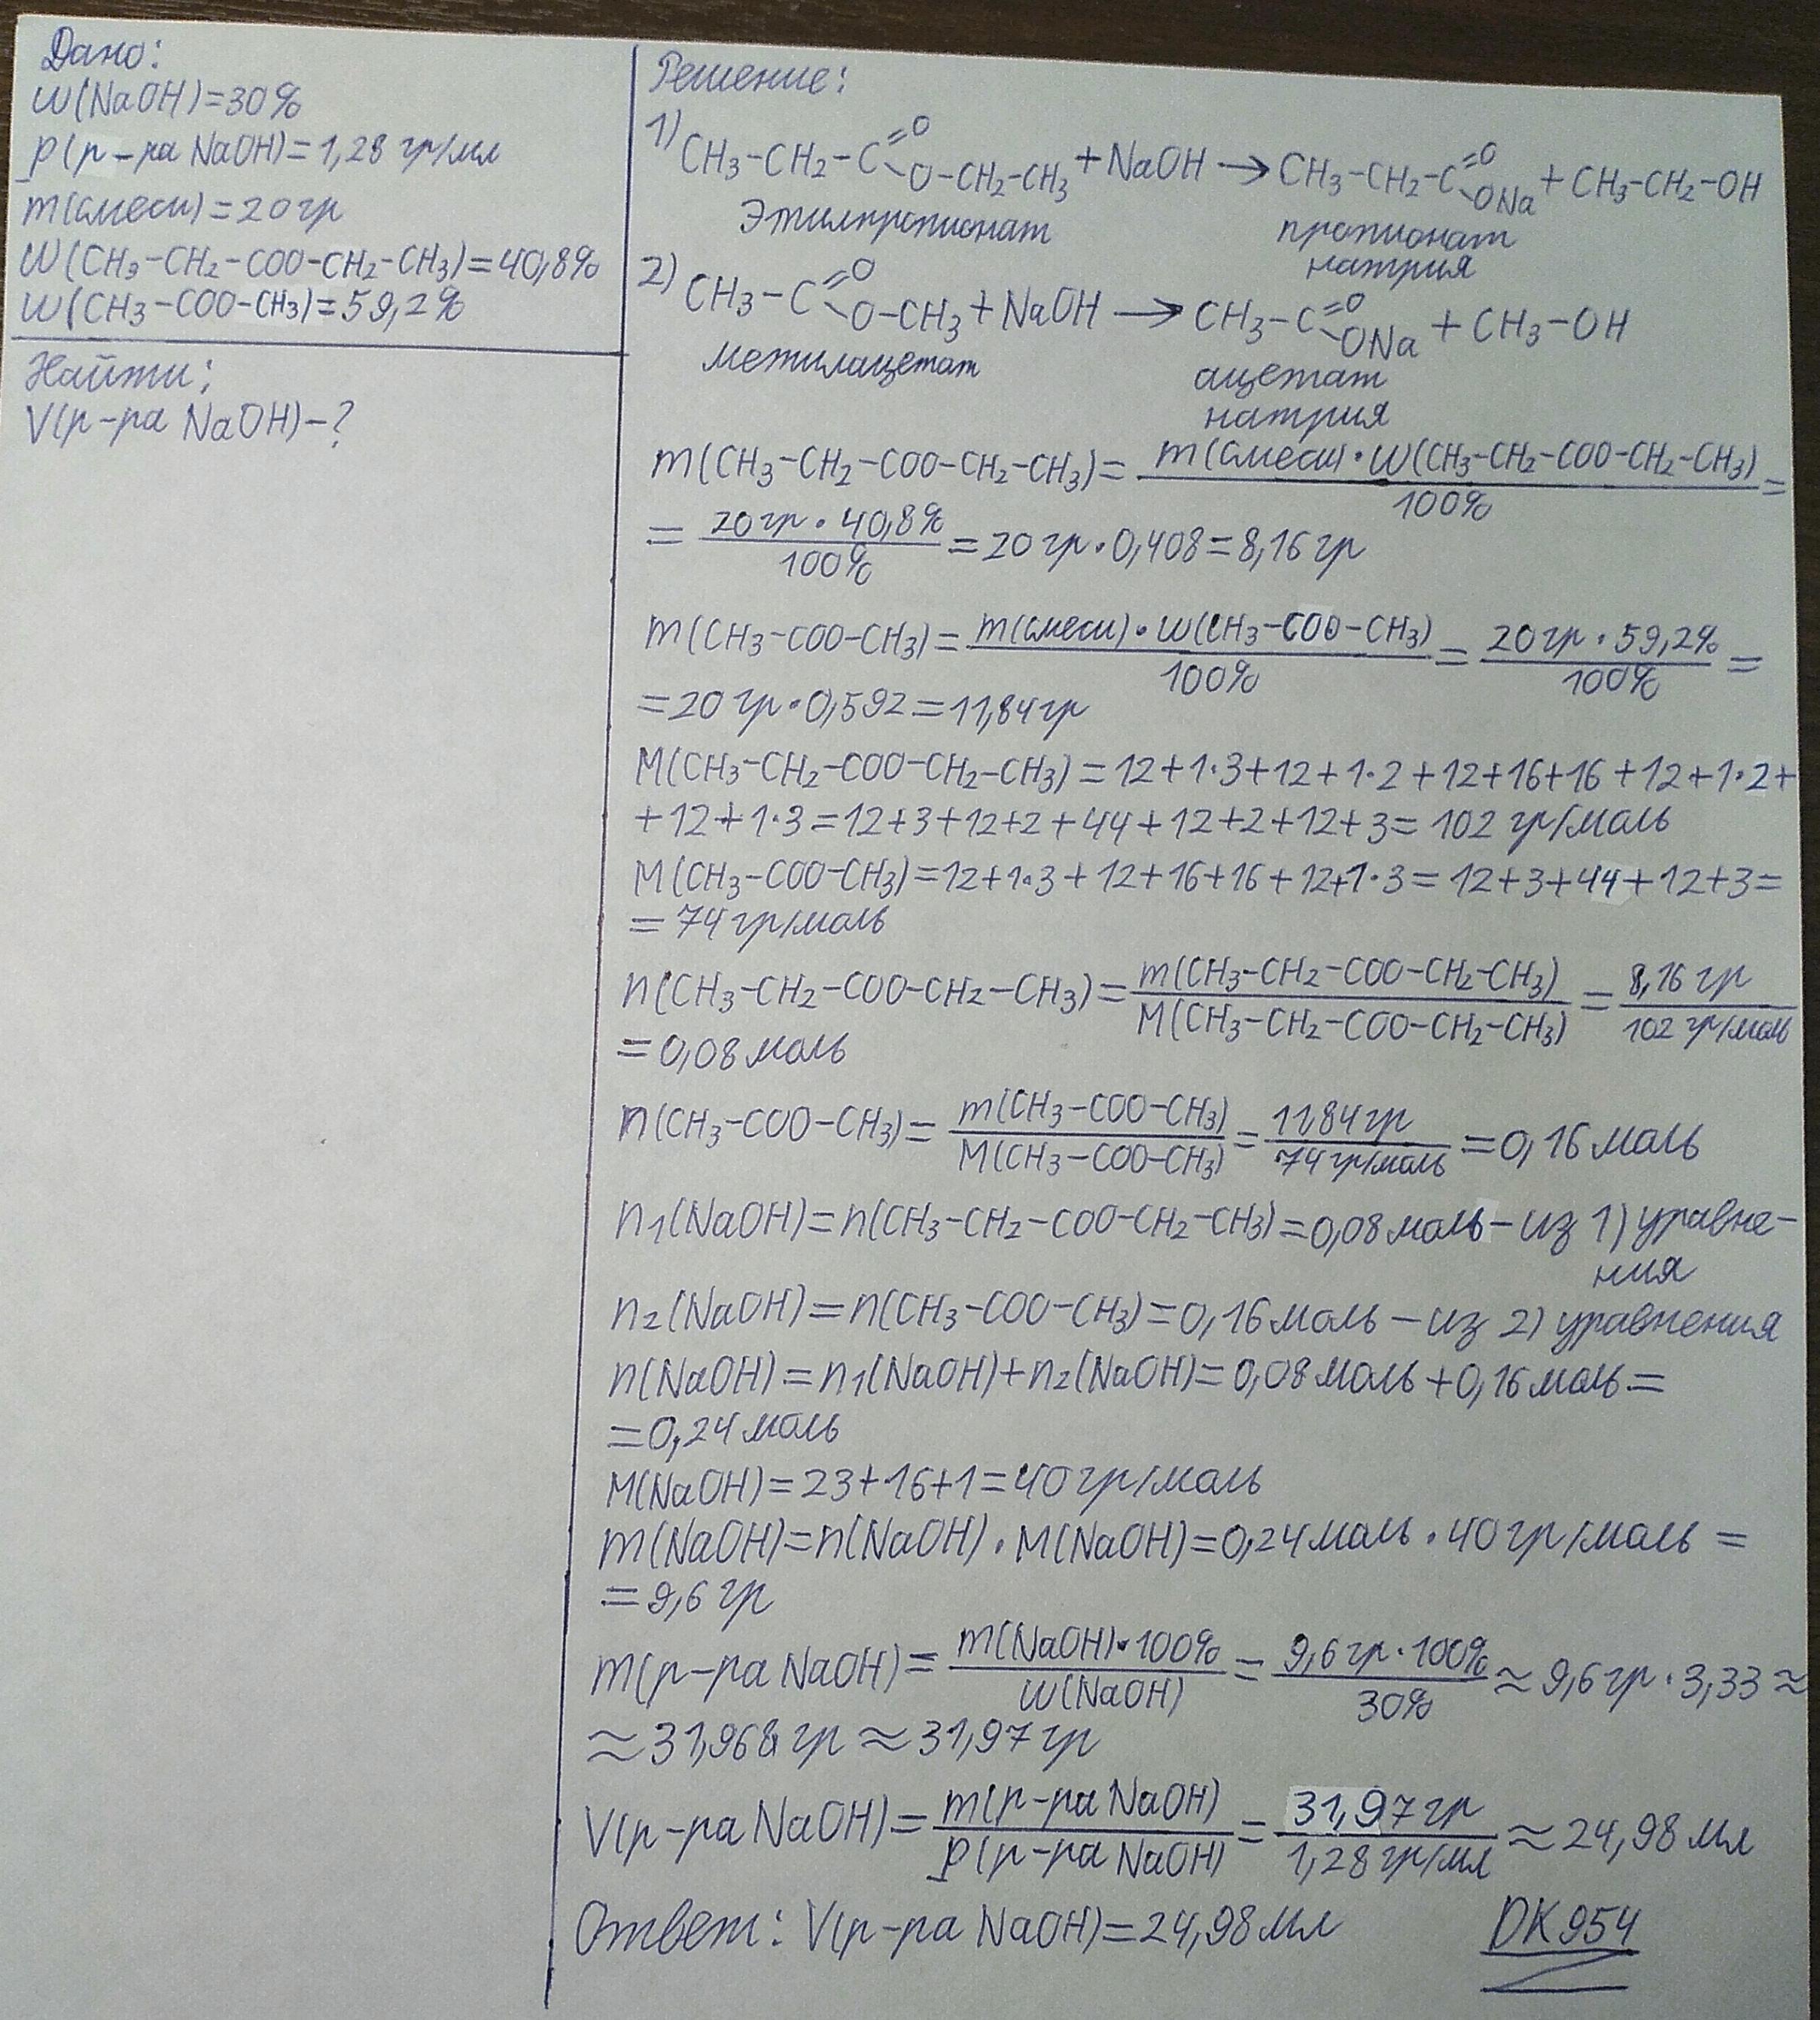 Дано:
W(NaOH)=30%
р(р-ра NaOH)=1,28 гр/мл
m(смеси)=20гр
W(CH₃-CH₂-COO-CH₂-CH₃)=40,8%
W(CH₃-COO-CH₃)=59,2%
Найти:
V(р-ра NaOH)-?
Решение:
1) CH₃-CH₂-C=O O-CH₂-CH₃+NaOH→CH₃-CH₂-C=O ONa+CH₃-CH₂-OH
Этилпропионат пропионат
натрия
2) CH₃-C=O O-CH₃+NaOH→CH₃-C=O ONa+CH₃-OH
метилацетат ацетат
натрия
m(CH₃-CH₂-COO-CH₂-CH₃)= m(смеси)·W(CH₃-CH₂-COO-CH₂-CH₃)/100% =
= 20гр·40,8%/100% =20гр·0,408=8,16гр
m(CH₃-COO-CH₃)= m(смеси)·W(CH₃-COO-CH₃)/100% = 20гр·59,2%/100% =
=20гр·0,592=11,84гр
M(CH₃-CH₂-COO-CH₂-CH₃)=12+1·3+12+1·2+12+16+16+12+1·2+
+12+1·3=12+3+12+2+44+12+2+12+3=102 гр/моль
M(CH₃-COO-CH₃)=12+1·3+12+16+16+12+1·3=12+3+44+12+3=
=74гр/моль
n(CH₃-CH₂-COO-CH₂-CH₃)= m(CH₃-CH₂-COO-CH₂-CH₃)/M(CH₃-CH₂-COO-CH₂-CH₃) = 8,16гр/102гр/моль
=0,08моль
n(CH₃-COO-CH₃)= m(CH₃-COO-CH₃)/M(CH₃-COO-CH₃) = 11,84гр/74гр/моль =0,16моль
n₁(NaOH)=n(CH₃-CH₂-COO-CH₂-CH₃)=0,08моль-из 1) уравне-
ния
n₂(NaOH)=n(CH₃-COO-CH₃)=0,16моль-из 2) уравнения
n(NaOH)=n₁(NaOH)+n₂(NaOH)=0,08моль+0,16моль=
=0,24моль
M(NaOH)=23+16+1=40гр/моль
m(NaOH)=n(NaOH)·M(NaOH)=0,24моль·40гр/моль=
=9,6гр
m(р-ра NaOH)= m(NaOH)·100%/W(NaOH) = 9,6гр·100%/30% ≈9,6гр·3,33≈
≈31,968гр≈31,97гр
V(р-ра NaOH)= m(р-ра NaOH)/р(р-ра NaOH) = 31,97гр/1,28гр/мл ≈24,98мл
Ответ: V(р-ра NaOH)=24,98мл DK954